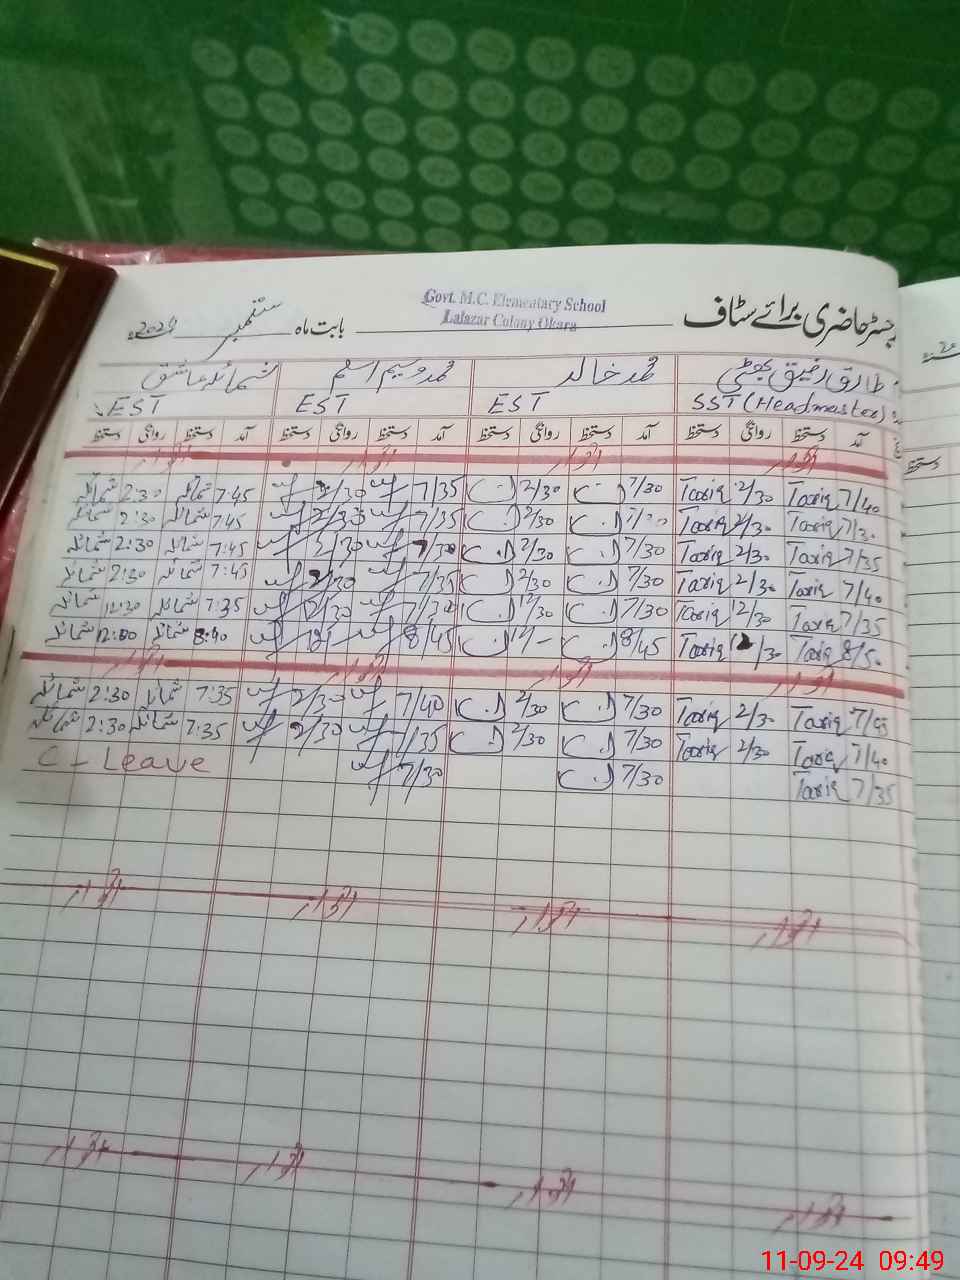 رجسٹر حاضری برائے سٹاف
Govt. M.C. Elementary School
Lalazar Colony Okara
بابت ماہ ستمبر 2024ء
طارق رفیق بھٹی محمد خالد محمد وسیم اسلم شمائلہ عاشق
SST (Headmaster) EST EST EST
آمد دستخط روانگی دستخط آمد دستخط روانگی دستخط آمد دستخط روانگی دستخط آمد دستخط روانگی دستخط
اتوار اتوار اتوار اتوار
7/40 Tariq 2/30 Tariq 7/30 2/30 7/35 2/30 7:45 شمائلہ 2:30 شمائلہ
7/30 Tariq 2/30 Tariq 2/30 7/35 2/30 7:45 شمائلہ 2:30 شمائلہ
7/35 Tariq 2/30 Tariq 7/30 2/30 7/30 2/30 7:45 شمائلہ 2:30 شمائلہ
7/40 Tariq 2/30 Tariq 7/30 2/30 7/35 2/30 7:45 شمائلہ 2:30 شمائلہ
7/35 Tariq 12/30 Tariq 7/30 12/30 7/30 12/30 7:35 شمائلہ 12:30 شمائلہ
8/50 Tariq 12/30 Tariq 8/45 12/- 8/45 12/- 8:40 شمائلہ 12:00 شمائلہ
اتوار اتوار اتوار اتوار
7/45 Tariq 2/30 Tariq 7/30 2/30 7/40 2/30 7:35 شمائلہ 2:30 شمائلہ
7/40 Tariq 2/30 Tariq 7/30 2/30 7/35 2/30 7:35 شمائلہ 2:30 شمائلہ
7/35 Tariq 7/30 7/30 C - Leave
اتوار اتوار اتوار اتوار
اتوار اتوار اتوار اتوار
دستخط
11-09-24 09:49